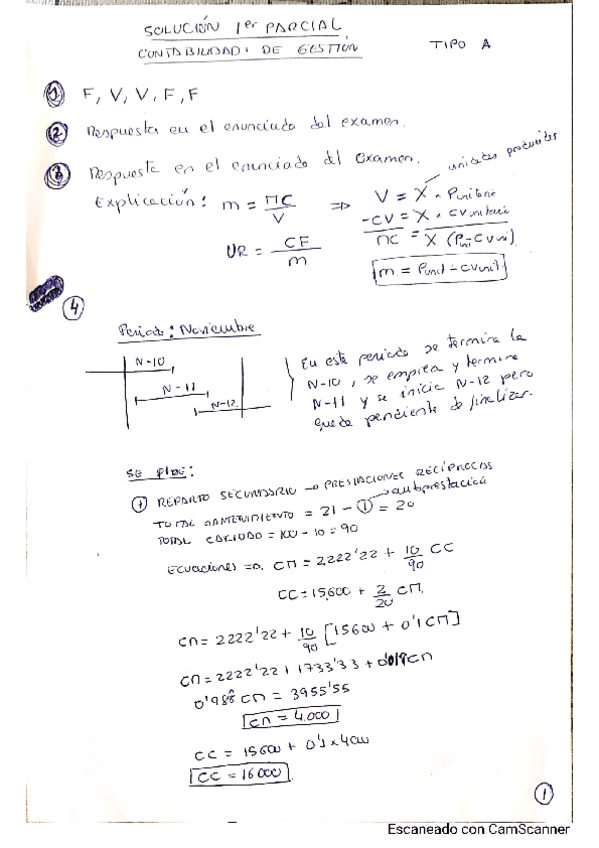 SOLUCIÓN 1er PARCIAL
CONTABILIDAD DE GESTIÓN TIPO A
① F, V, V, F, F
② Respuesta en el enunciado del examen.
③ Respuesta en el enunciado del examen.
unidades producidas
Explicación: m = MC/V ⇒ V = X · Punitario
-CV = X · CVunitario
MC = X (Puni - CVuni)
UR = CF/m
m = Punit - CVunit
④
Periodo: Noviembre
N-10
N-11
N-12
En este periodo se termina la
N-10, se empieza y termina
N-11 y se inicia N-12 pero
queda pendiente de finalizar.
SE PIDE:
① REPARTO SECUNDARIO → PRESTACIONES RECÍPROCAS
autoprestación
TOTAL MANTENIMIENTO = 21 - ① = 20
TOTAL = 100 - 10 = 90
Ecuaciones ⇒ CM = 2.222'22 + 10/90 CC
CC = 15.600 + 2/20 CM.
CM = 2222'22 + 10/90 [15600 + 0'1 CM]
CM = 2222'22 + 1733'33 + CM
CM = 3955'55
CM = 4.000
CC = 15600 + 0'1 x 4000
CC = 16000
①
Escaneado con CamScanner